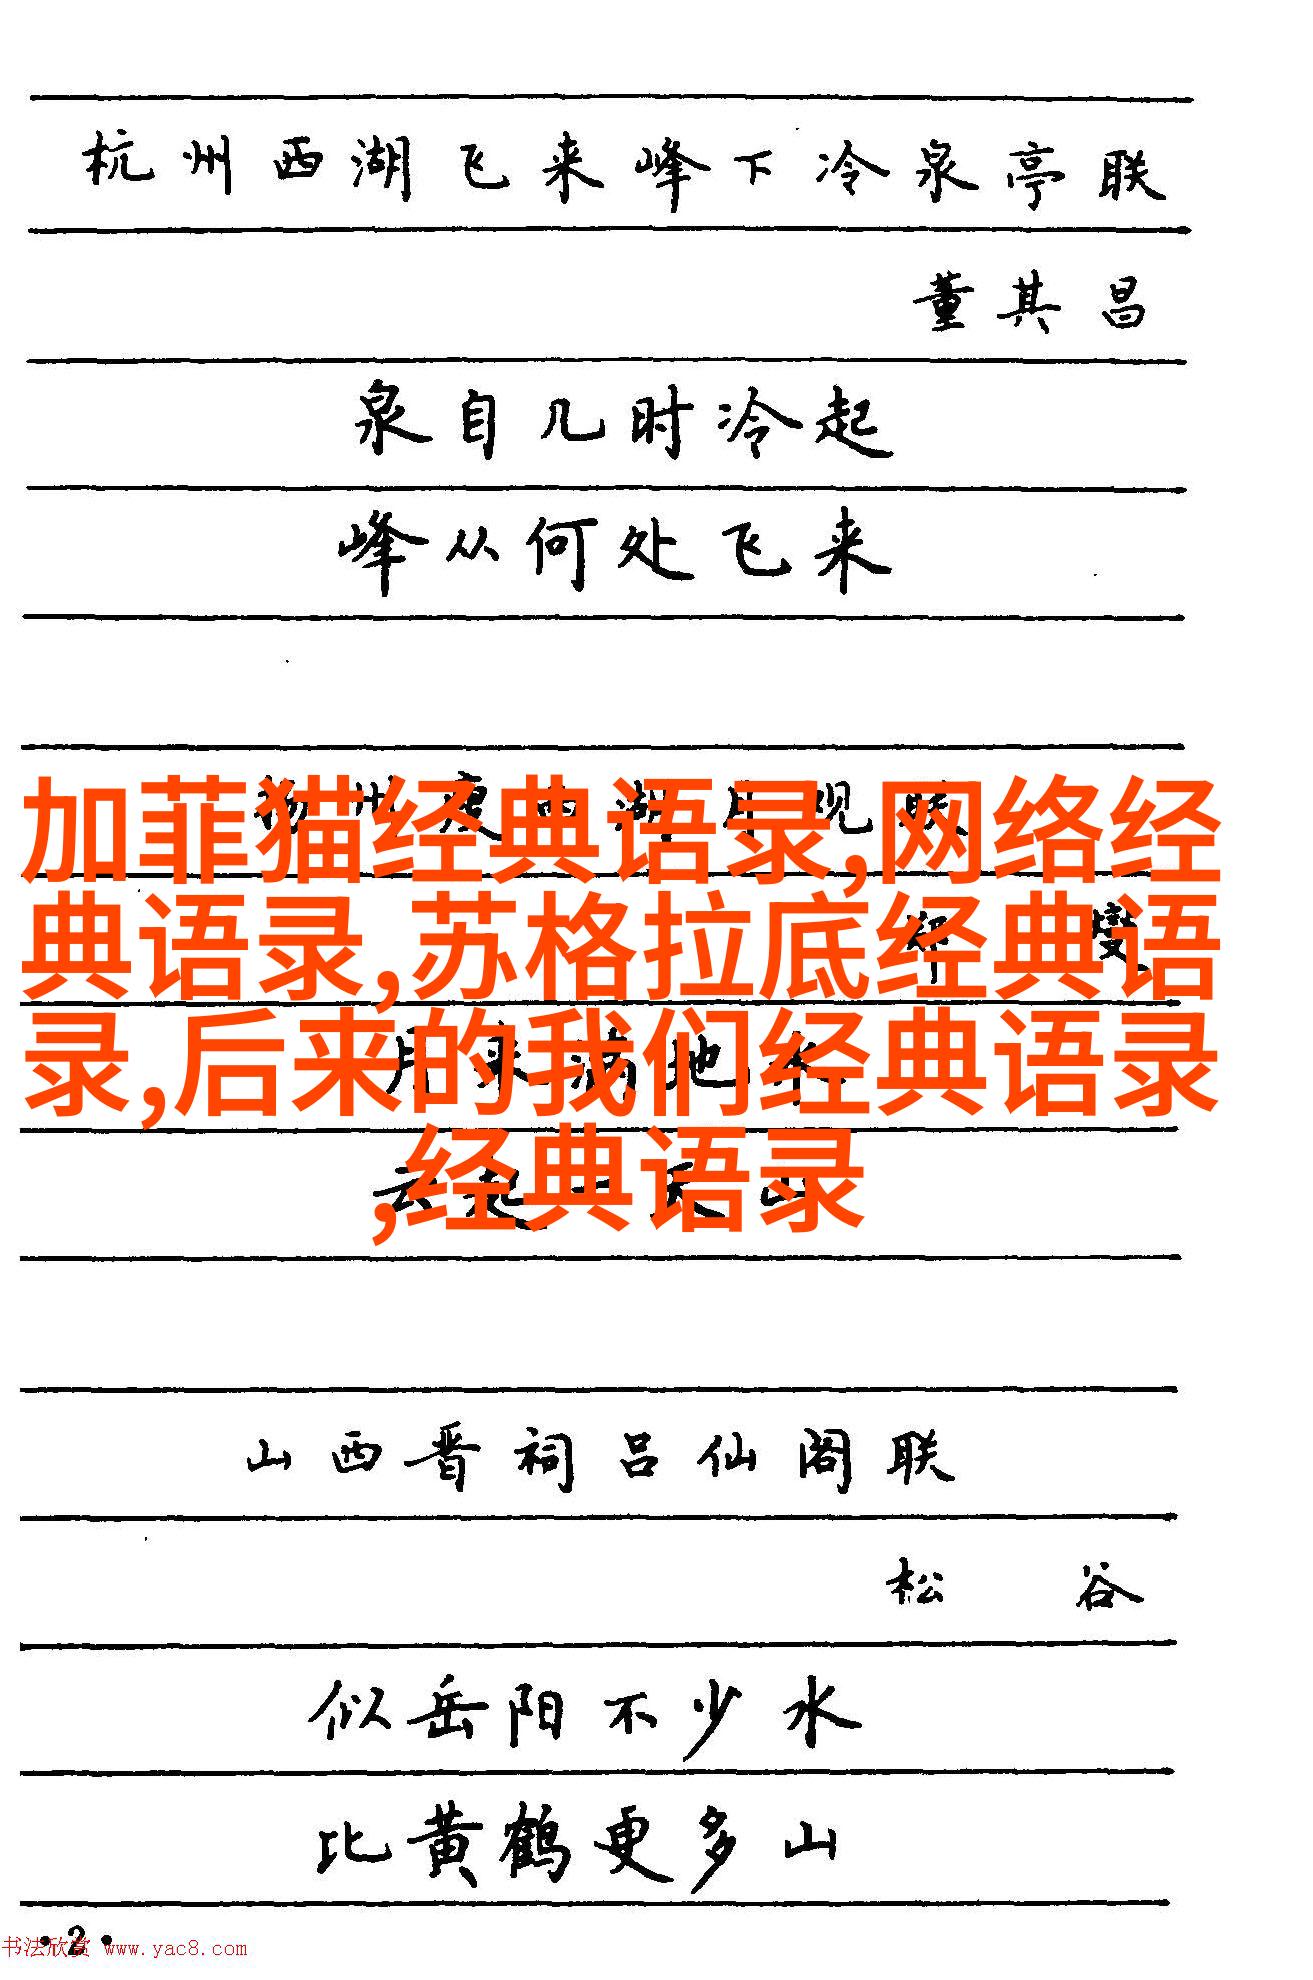 杭州西湖飞来峰下冷泉亭联
董其昌
泉自几时冷起
峰从何处飞来
加菲猫经典语录,网络经
典语录,苏格拉底经典语
录,后来的我们经典语录
,经典语录
山西晋祠吕仙阁联
松谷
似岳阳不少水
比黄鹤更多山
·2·
书法欣赏 www.yac8.com